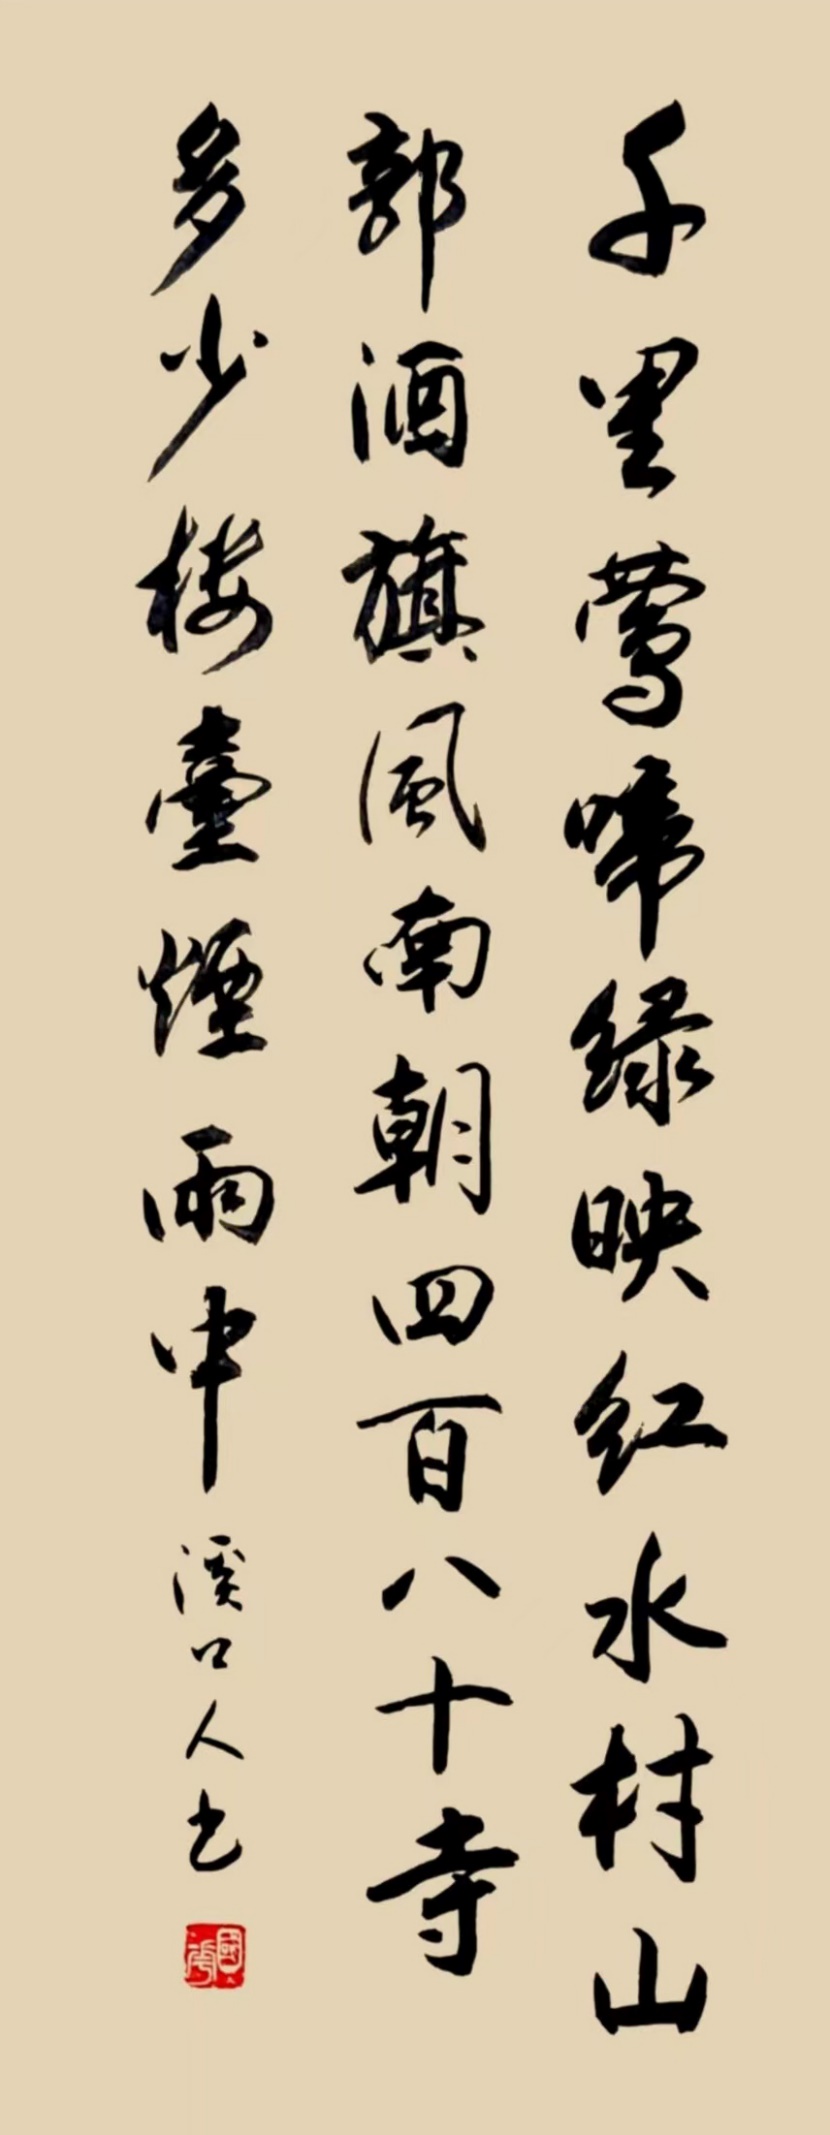 千里莺啼绿映红水村山
郭酒旗風南朝四百八十寺
多少楼臺煙雨中
溪口人书